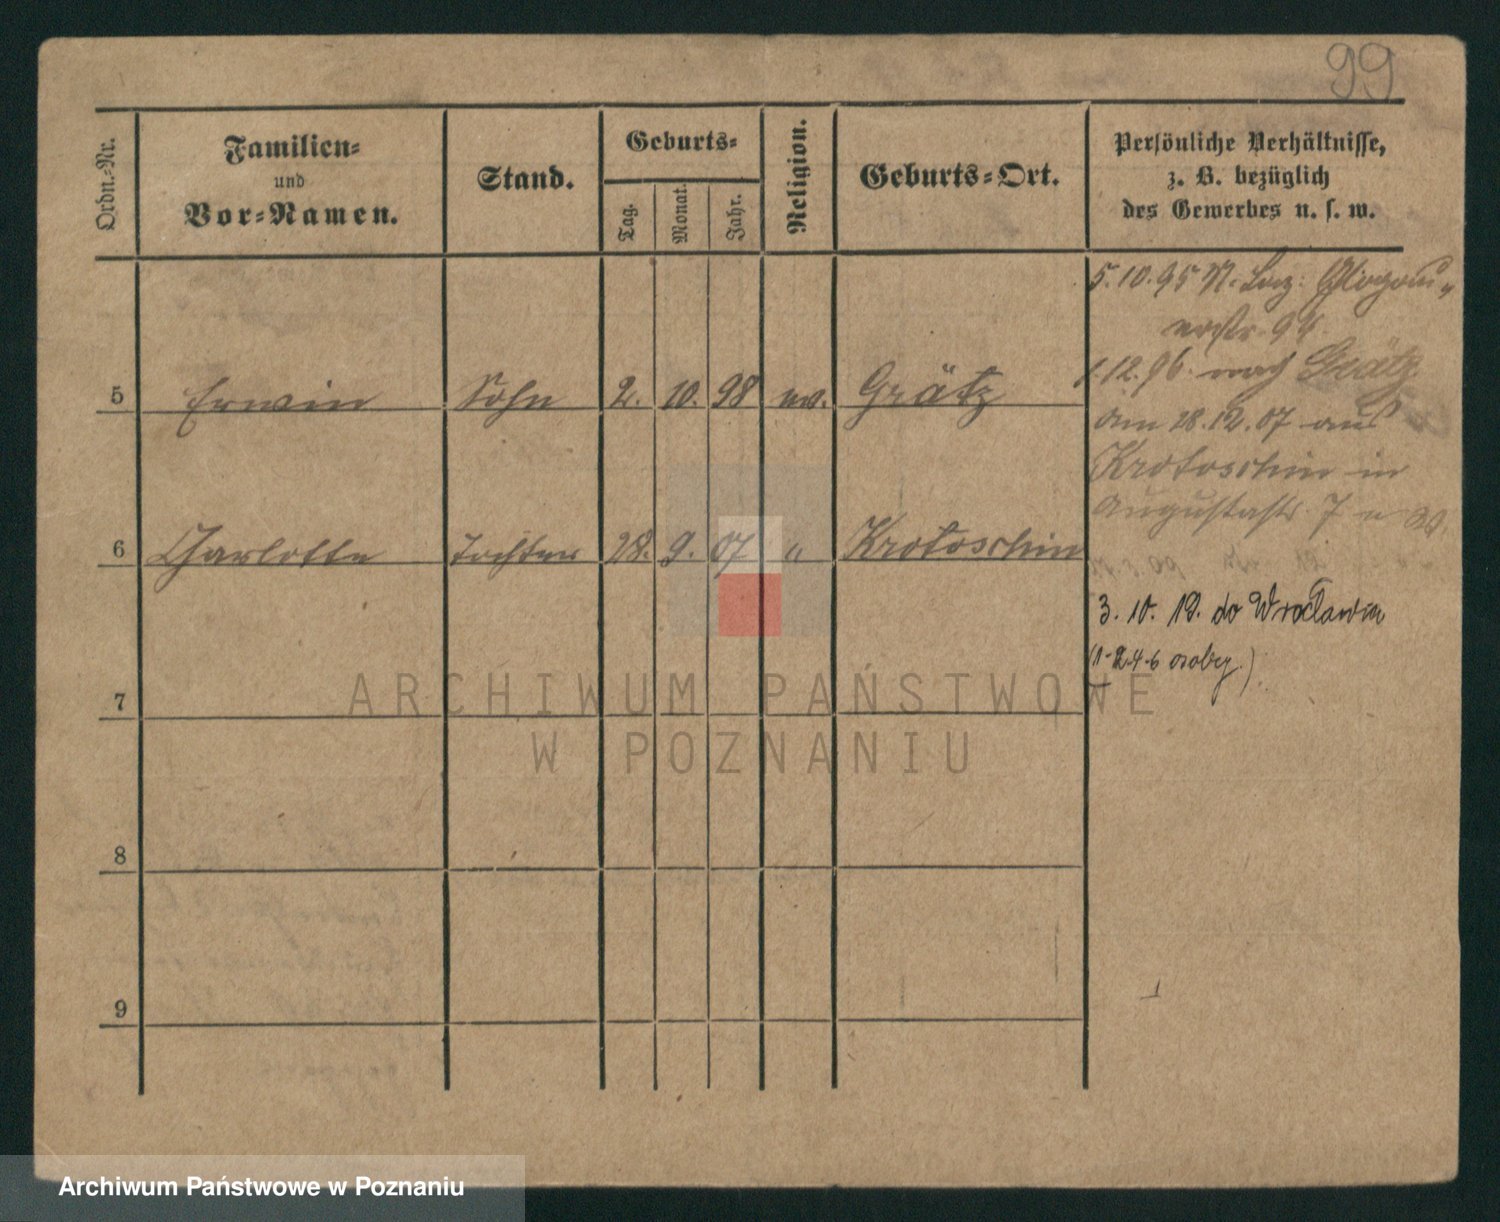 99
Ordn.-Nr.
Familien-
und
Vor-Namen.
Stand.
Geburts-
Tag.
Monat.
Jahr.
Religion.
Geburts-Ort.
Persönliche Verhältnisse,
z. B. bezüglich
des Gewerbes u. s. w.
5.10.95 N. Laz: Glogau-
erstr. 94
1.12.96. nach Grätz
5 Erwin Sohn 2. 10. 98 ev. Grätz
am 28.12.07 aus
Krotoschin in
Augustastr. 7
6 Charlotte Tochter 28. 9. 07 " Krotoschin
3. 10. 19. do Wrocławia
(1-2-4-6 osoby.)
7
8
9
ARCHIWUM PAŃSTWOWE
W POZNANIU
Archiwum Państwowe w Poznaniu